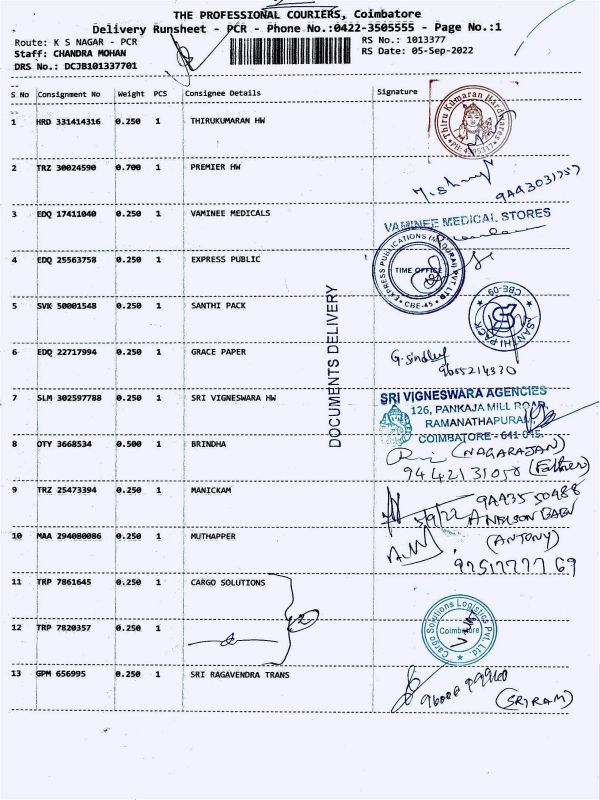 THE PROFESSIONAL COURIERS, Coimbatore
Delivery Runsheet - PCR - Phone No.:0422-3505555 - Page No.:1
Route: K S NAGAR - PCR
RS No.: 1013377
Staff: CHANDRA MOHAN
RS Date: 05-Sep-2022
DRS No.: DCJB101337701
S No Consignment No Weight PCS Consignee Details Signature
1 HRD 331414316 0.250 1 THIRUKUMARAN HW
Thiru Kumaran Hardwares
2 TRZ 30024590 0.700 1 PREMIER HW
3 EDQ 17411040 0.250 1 VAMINEE MEDICALS
VAMINEE MEDICAL STORES
4 EDQ 25563758 0.250 1 EXPRESS PUBLIC
EXPRESS PUBLICATIONS (MADURAI) PVT. LTD
TIME OFFICE
CBE-45
5 SVK 50001548 0.250 1 SANTHI PACK
SANTHI PACK
CBE-09
DOCUMENTS DELIVERY
6 EDQ 22717994 0.250 1 GRACE PAPER
9655214330
7 SLM 302597788 0.250 1 SRI VIGNESWARA HW
SRI VIGNESWARA AGENCIES
126, PANKAJA MILL ROAD,
RAMANATHAPURAM,
COIMBATORE - 641 045.
8 OTY 3668534 0.500 1 BRINDHA
(NAGARAJAN)
9442131058 (Father)
9 TRZ 25473394 0.250 1 MANICKAM
5/9/22
10 MAA 294080086 0.250 1 MUTHAPPER
(ANTONY)
11 TRP 7861645 0.250 1 CARGO SOLUTIONS
12 TRP 7820357 0.250 1
Cargo Solutions Logistics Pvt. Ltd.
Coimbatore
13 GPM 656995 0.250 1 SRI RAGAVENDRA TRANS
(SRIRAM)